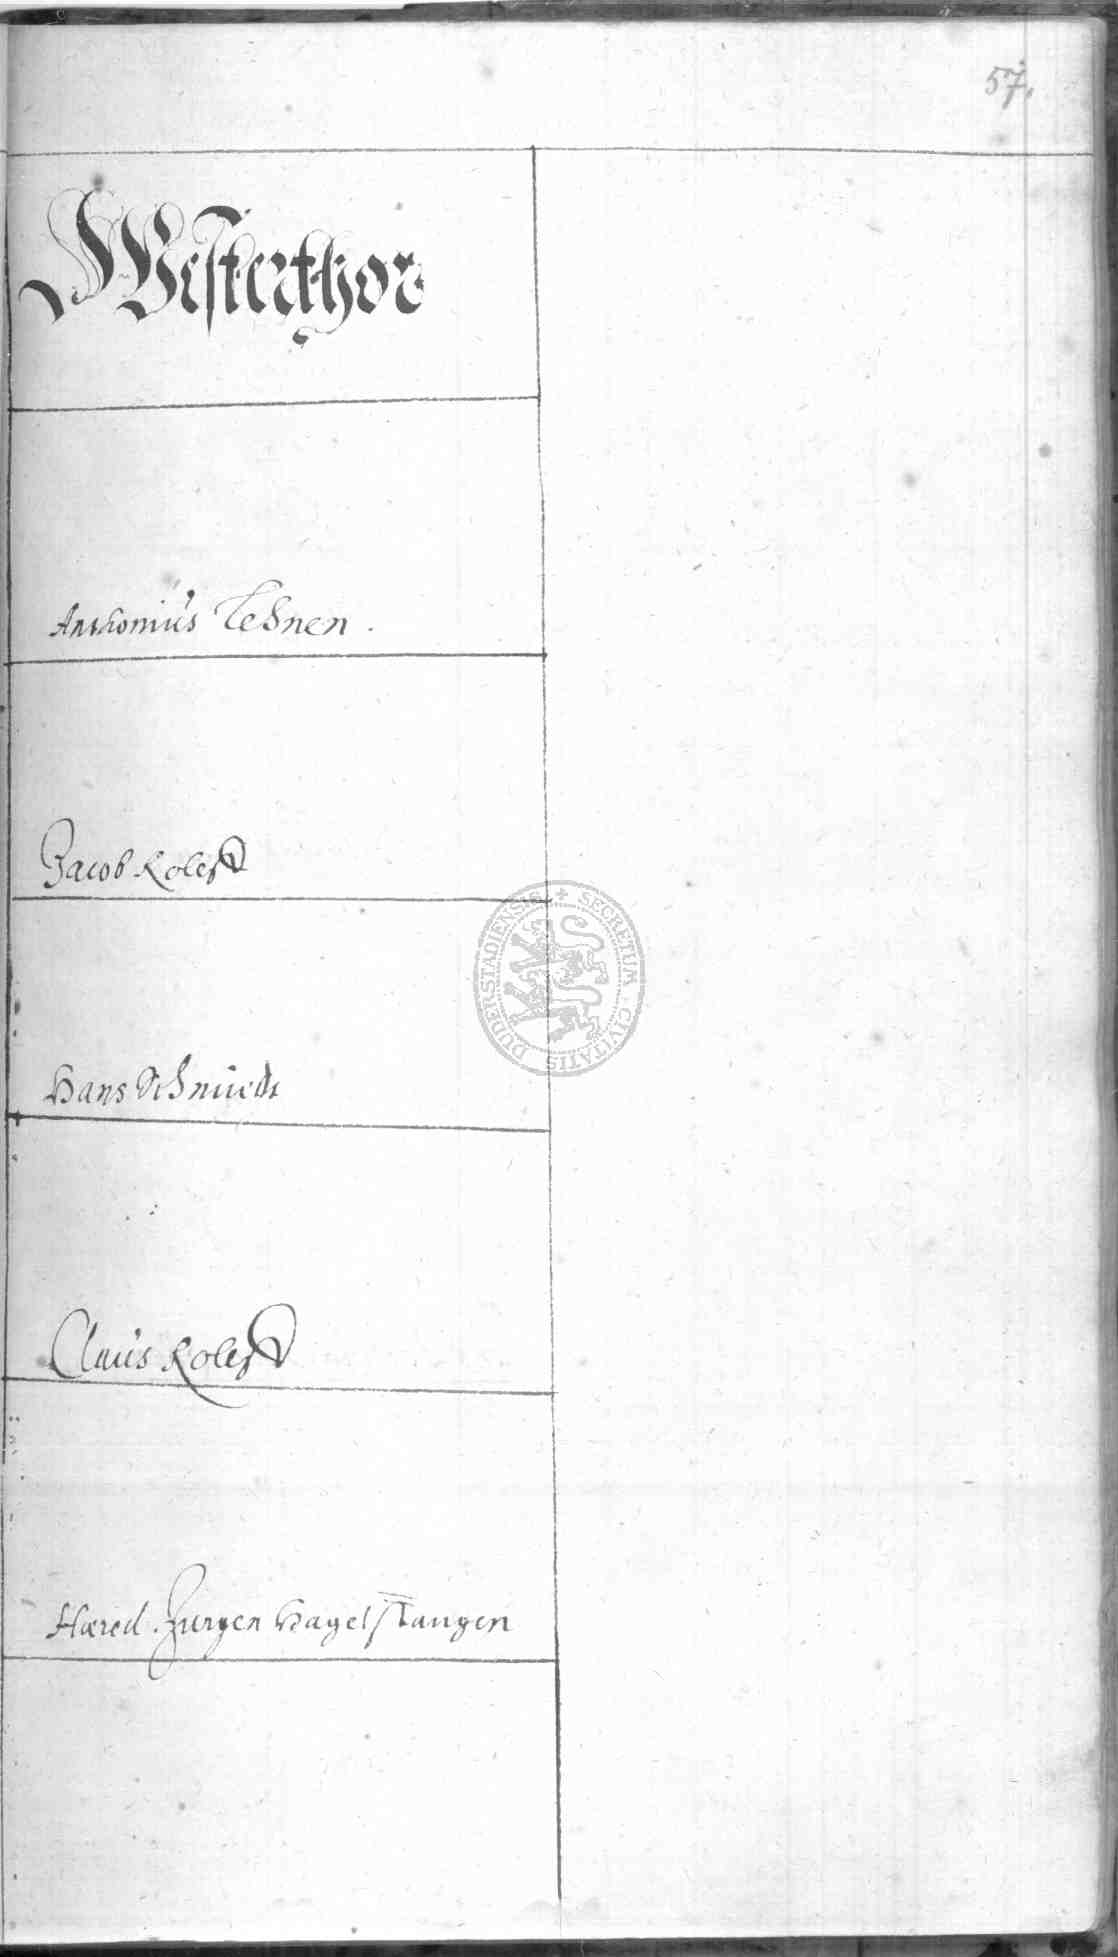 57.
Westerthor
Anthonius Tehnen.
Jacob
Hans Schmiedt
Claus
Hæred. Jurgen Hagelstangen
SECRETUM CIVITATIS DUDERSTADIENSIS